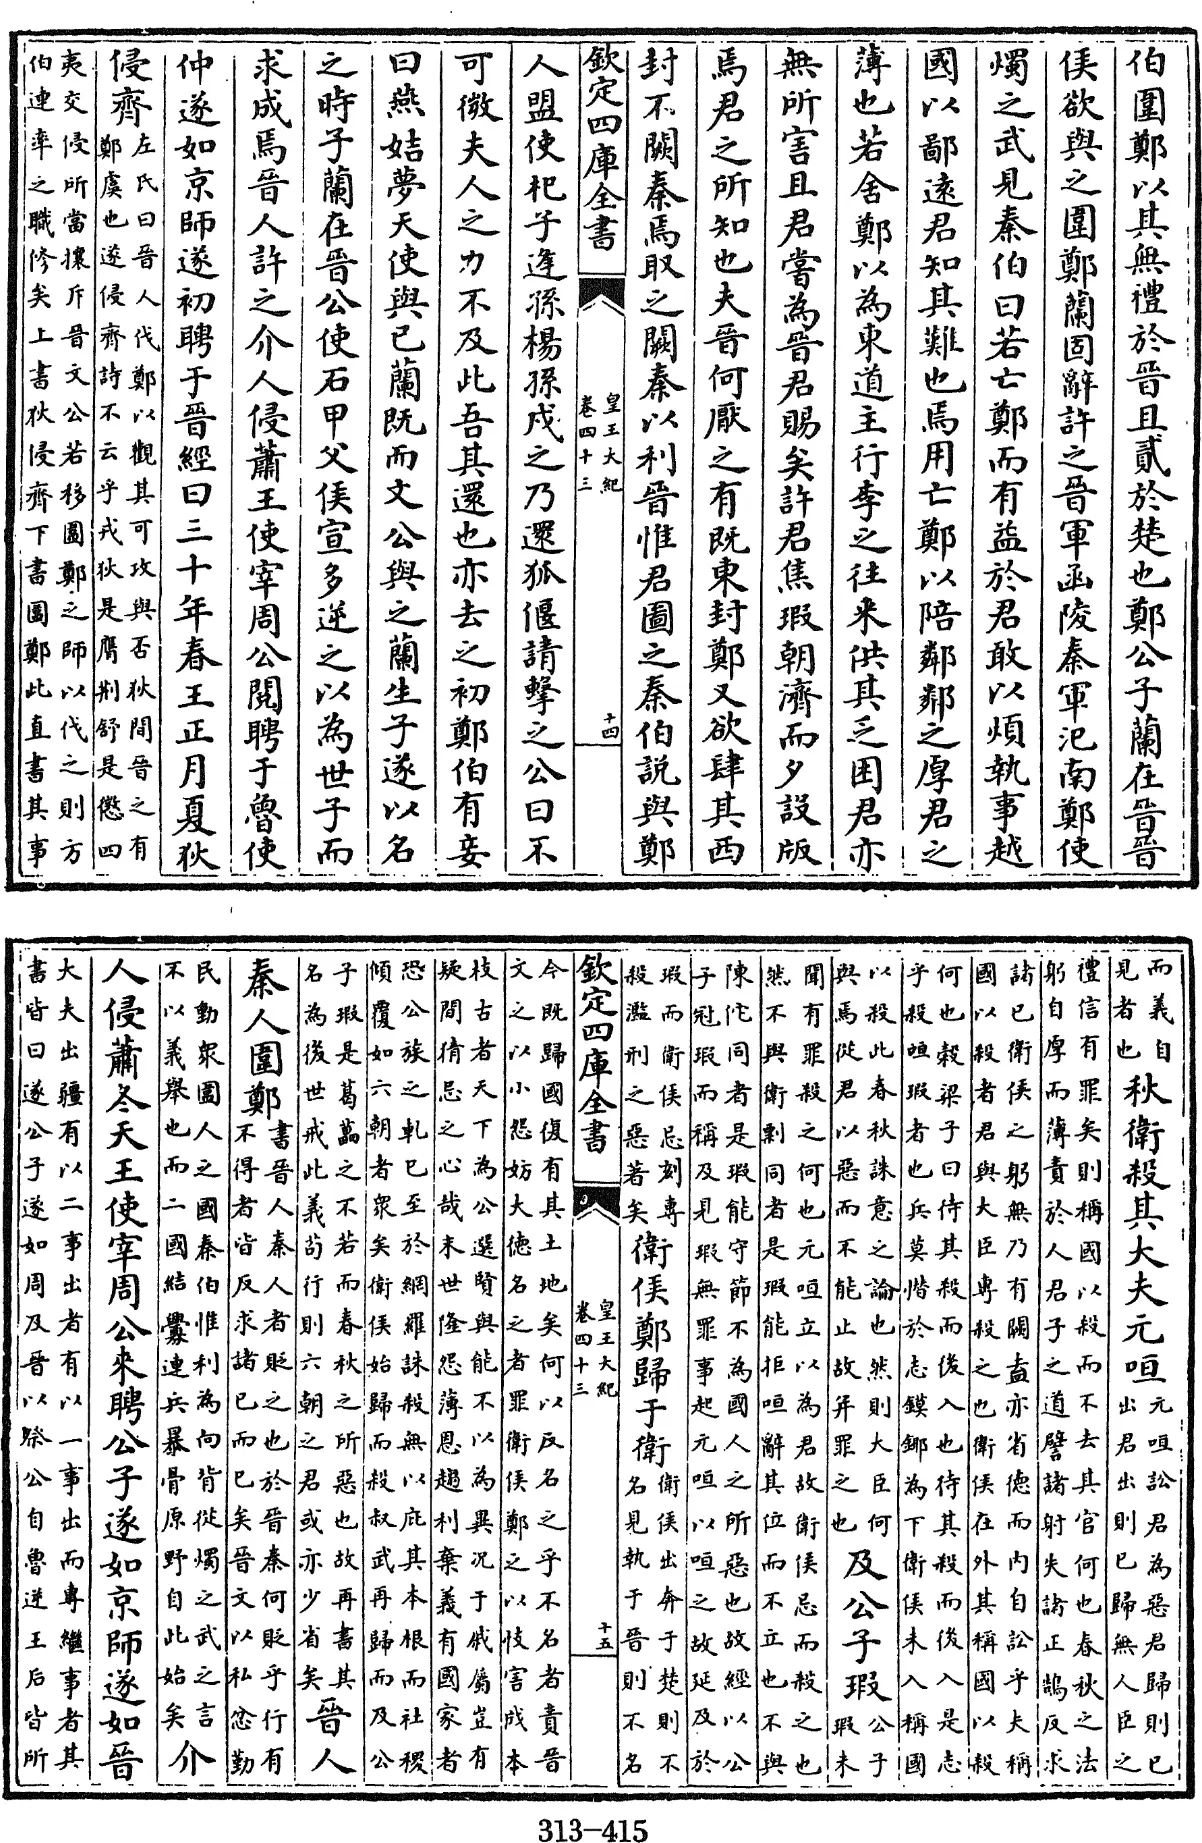 伯圍鄭以其無禮於晉且貳於楚也鄭公子蘭在晉晉
侯欲與之圍鄭蘭固辭許之晉軍函陵秦軍汜南鄭使
燭之武見秦伯曰若亡鄭而有益於君敢以煩執事越
國以鄙逺君知其難也焉用亡鄭以陪鄰鄰之厚君之
薄也若舍鄭以為東道主行李之往來供其乏困君亦
無所害且君嘗為晉君賜矣許君焦瑕朝濟而夕設版
焉君之所知也夫晉何厭之有既東封鄭又欲肆其西
封不闕秦焉取之闕秦以利晉惟君圖之秦伯説與鄭
欽定四庫全書
皇王大紀
卷四十三
十四
人盟使杞子逢孫楊孫戍之乃還狐偃請擊之公曰不
可微夫人之力不及此吾其還也亦去之初鄭伯有妾
曰燕姞夢天使與已蘭既而文公與之蘭生子遂以名
之時子蘭在晉公使石甲父侯宣多逆之以為世子而
求成焉晉人許之介人侵蕭王使宰周公閱聘于魯使
仲遂如京師遂初聘于晉經曰三十年春王正月夏狄
侵齊
左氏曰晉人伐鄭以觀其可攻與否狄間晉之有
鄭虞也遂侵齊詩不云乎戎狄是膺荆舒是懲四
夷交侵所當攘斥晉文公若移圍鄭之師以伐之則方
伯連率之職修矣上書狄侵齊下書圍鄭此直書其事
而義自
見者也
秋衛殺其大夫元咺
元咺訟君為惡君歸則已
出君出則已歸無人臣之
禮信有罪矣則稱國以殺而不去其官何也春秋之法
躬自厚而薄責於人君子之道譬諸射失諸正鵠反求
諸已衛侯之躬無乃有闕盍亦省德而内自訟乎夫稱
國以殺者君與大臣專殺之也衛侯在外其稱國以殺
何也榖梁子曰待其殺而後入也待其殺而後入是志
乎殺咺瑕者也兵莫憯於志鏌鎁為下衛侯未入稱國
以殺此春秋誅意之論也然則大臣何
與焉從君以惡而不能止故并罪之也
及公子瑕
公子
瑕未
聞有罪殺之何也元咺立以為君故衛侯忌而殺之也
然不與衛剽同者是瑕能拒咺辭其位而不立也不與
陳佗同者是瑕能守節不為國人之所惡也故經以公
子冠瑕而稱及見瑕無罪事起元咺以咺之故延及於
瑕而衛侯忌刻專
殺濫刑之惡著矣
衛侯鄭歸于衛
衛侯出奔于楚則不
名見執于晉則不名
欽定四庫全書
皇王大紀
卷四十三
十五
今既歸國復有其土地矣何以反名之乎不名者責晉
文之以小怨妨大德名之者罪衛侯鄭之以忮害成本
枝古者天下為公選賢與能不以為異况于戚屬豈有
疑間猜忌之心哉末世隆怨薄恩趨利棄義有國家者
恐公族之軋已至於網羅誅殺無以庇其本根而社稷
傾覆如六朝者衆矣衛侯始歸而殺叔武再歸而及公
子瑕是葛藟之不若而春秋之所惡也故再書其
名為後世戒此義苟行則六朝之君或亦少省矣
晉人
秦人圍鄭
書晉人秦人者貶之也於晉秦何貶乎行有
不得者皆反求諸已而已矣晉文以私忿勤
民動衆圍人之國秦伯惟利為向背從燭之武之言
不以義舉也而二國結釁連兵暴骨原野自此始矣
介
人侵蕭冬天王使宰周公來聘公子遂如京師遂如晉
大夫出疆有以二事出者有以一事出而專繼事者其
書皆曰遂公子遂如周及晉以祭公自魯逆王后皆所
313-415